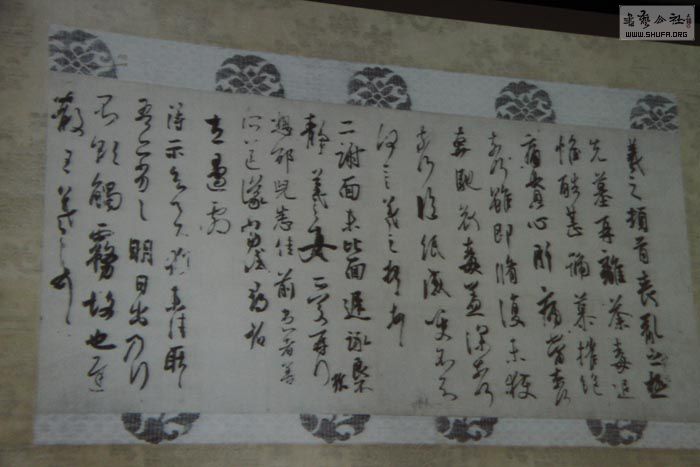 羲之頓首喪亂之極
先墓再離荼毒追
惟酷甚號慕摧絕
痛貫心肝痛當奈何
奈何雖即脩復未獲
奔馳哀毒益深奈何
奈何臨紙感哽不知
何言羲之頓首頓首
二謝面未比面遲詠良不
靜羲之女愛再拜
想邵兒悉佳前患者善
左邊劇
得示知足下猶未佳耿耿
吾亦劣劣明日出乃行
不欲觸霧故也遲
散王羲之頓首
書藝公社
WWW.SHUFA.ORG